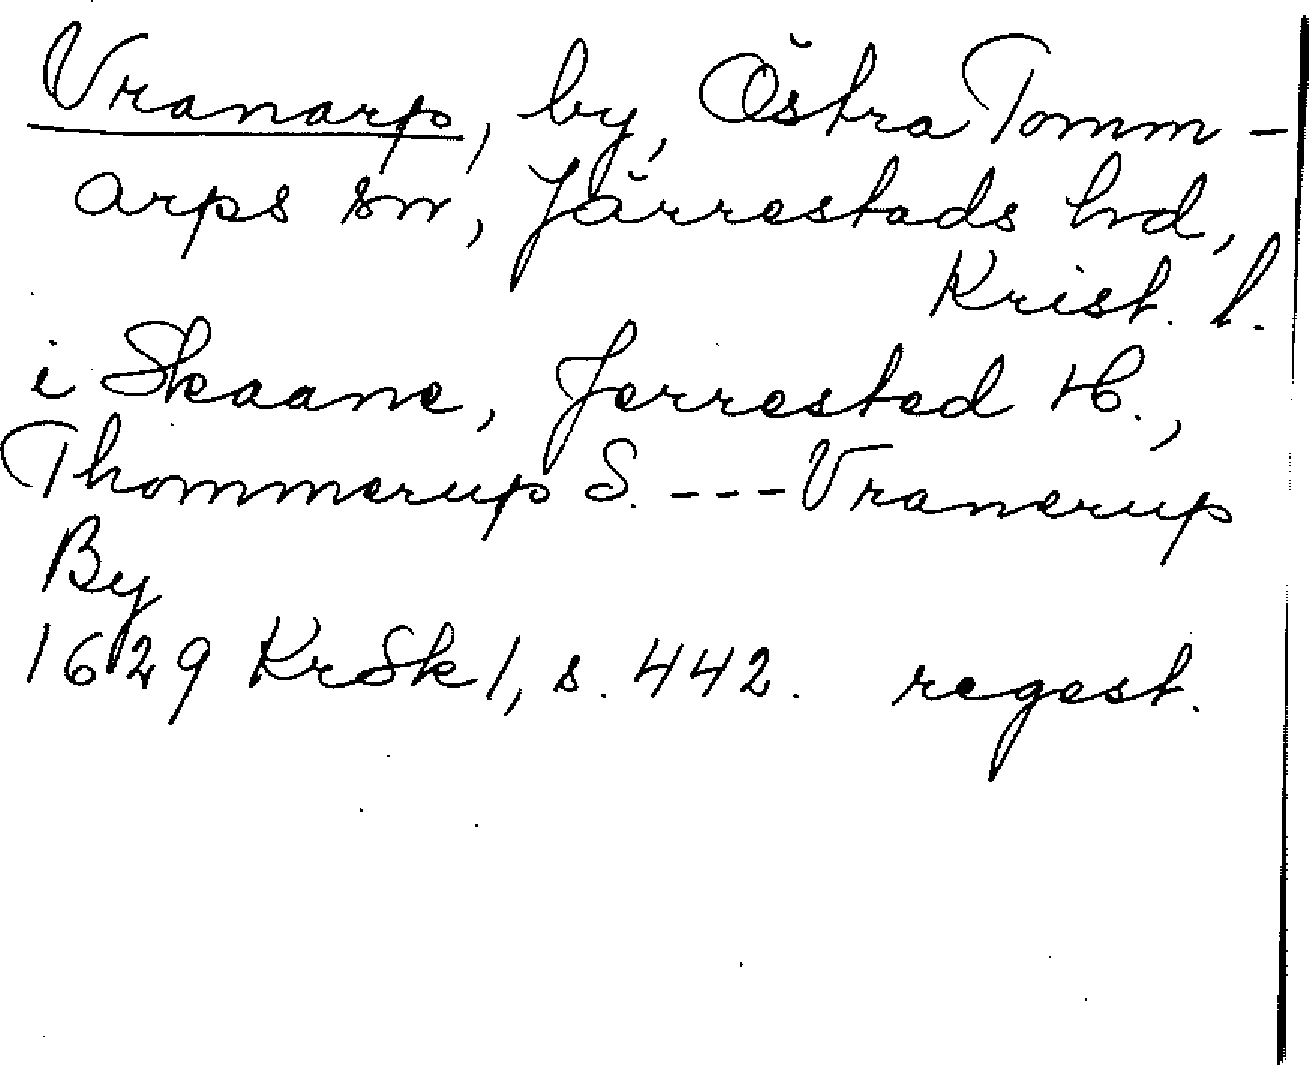 Vranarp, by, Östra Tomm-
arps sn, Järrestads hd,
Krist. l.
i Skaane, Jerrested H.,
Thommerup S. --- Vranerup
By
1629 KrSk 1, s. 442. regest.